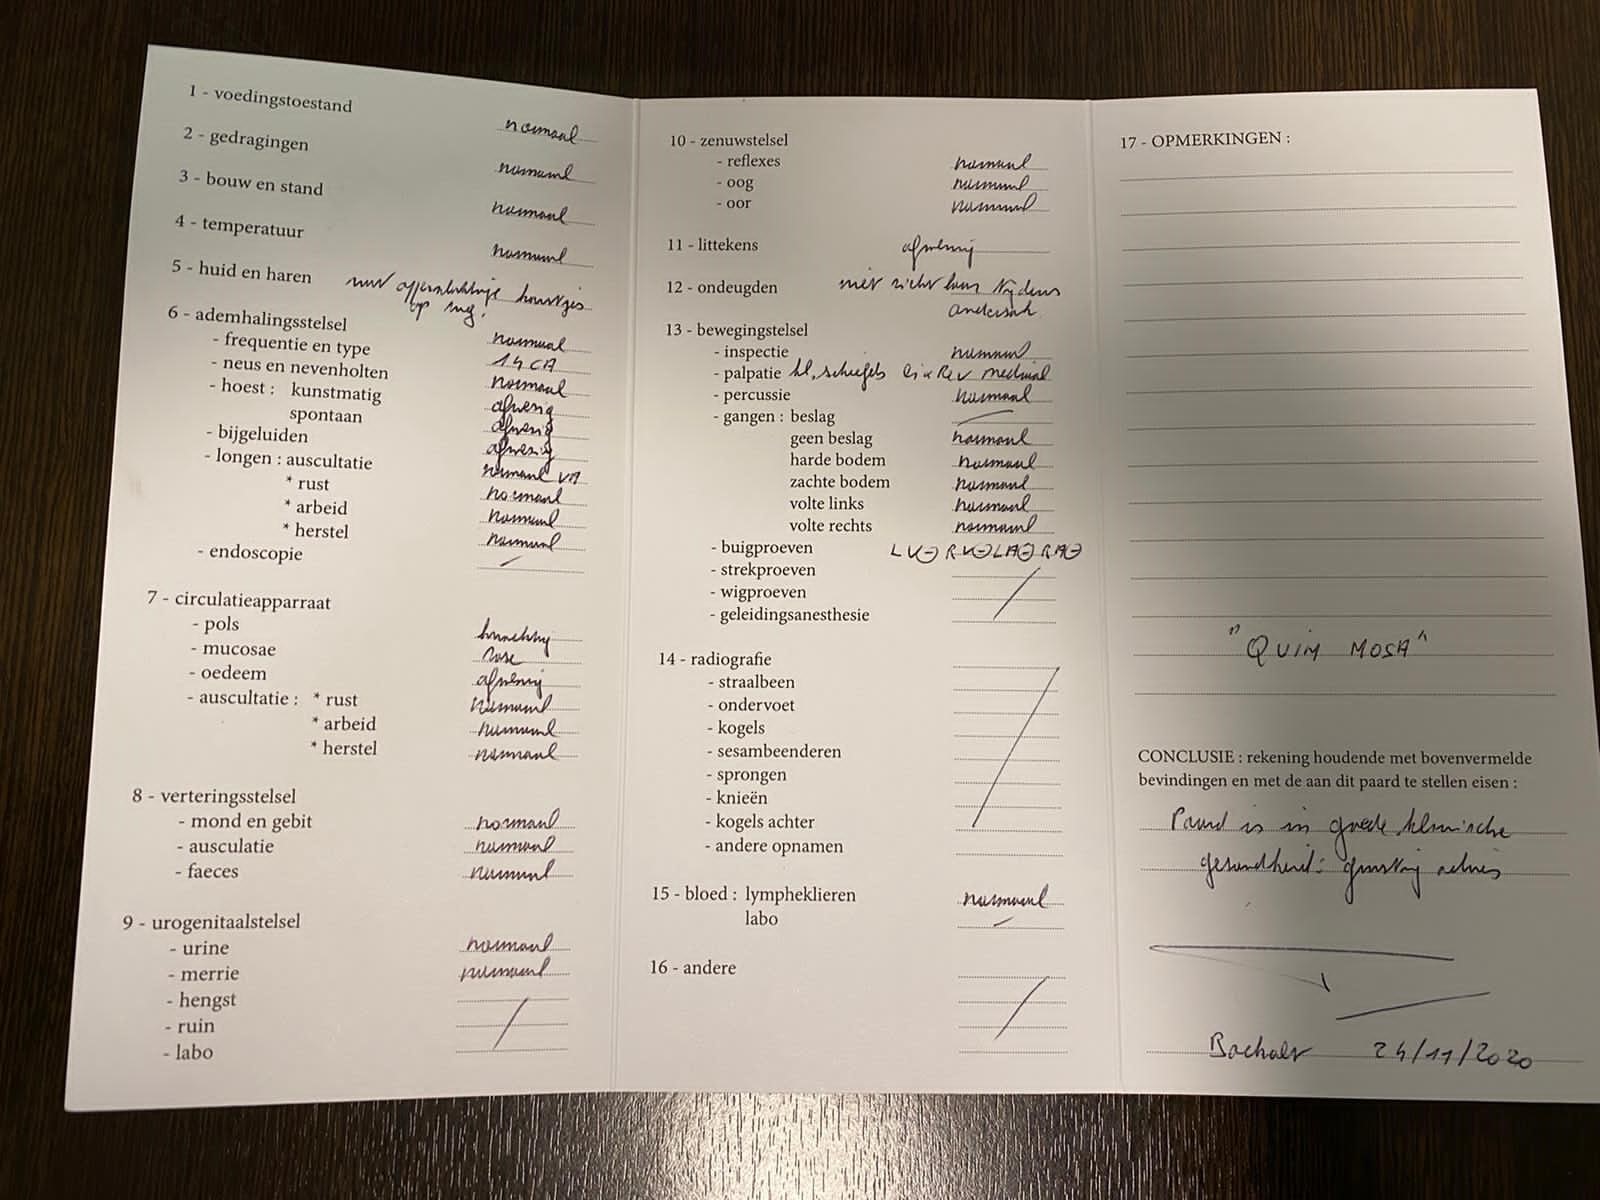 1 - voedingstoestand normaal
2 - gedragingen normaal
3 - bouw en stand normaal
4 - temperatuur normaal
5 - huid en haren oppervlakkige korstjes
op rug.
6 - ademhalingsstelsel
- frequentie en type normaal
- neus en nevenholten normaal
- hoest : kunstmatig afwezig
spontaan afwezig
- bijgeluiden afwezig
- longen : auscultatie normaal
* rust normaal
* arbeid normaal
* herstel normaal
- endoscopie
7 - circulatieapparraat
- pols krachtig
- mucosae rose
- oedeem afwezig
- auscultatie : * rust normaal
* arbeid normaal
* herstel normaal
8 - verteringsstelsel
- mond en gebit normaal
- ausculatie normaal
- faeces normaal
9 - urogenitaalstelsel
- urine normaal
- merrie normaal
- hengst
- ruin
- labo
10 - zenuwstelsel
- reflexes normaal
- oog normaal
- oor normaal
11 - littekens afwezig
12 - ondeugden niet zichtbaar tijdens
onderzoek
13 - bewegingstelsel
- inspectie normaal
- palpatie kl. schiefels Li & Re V mediaal
- percussie normaal
- gangen : beslag
geen beslag normaal
harde bodem normaal
zachte bodem normaal
volte links normaal
volte rechts normaal
- buigproeven LV⊖ RV⊖ LA⊖ RA⊖
- strekproeven
- wigproeven
- geleidingsanesthesie
14 - radiografie
- straalbeen
- ondervoet
- kogels
- sesambeenderen
- sprongen
- knieën
- kogels achter
- andere opnamen
15 - bloed : lympheklieren normaal
labo
16 - andere
17 - OPMERKINGEN :
"QUIM MOSA"
CONCLUSIE : rekening houdende met bovenvermelde
bevindingen en met de aan dit paard te stellen eisen :
Paard is in goede klinische
gezondheid: gunstig advies
Bocholt 24/11/2020